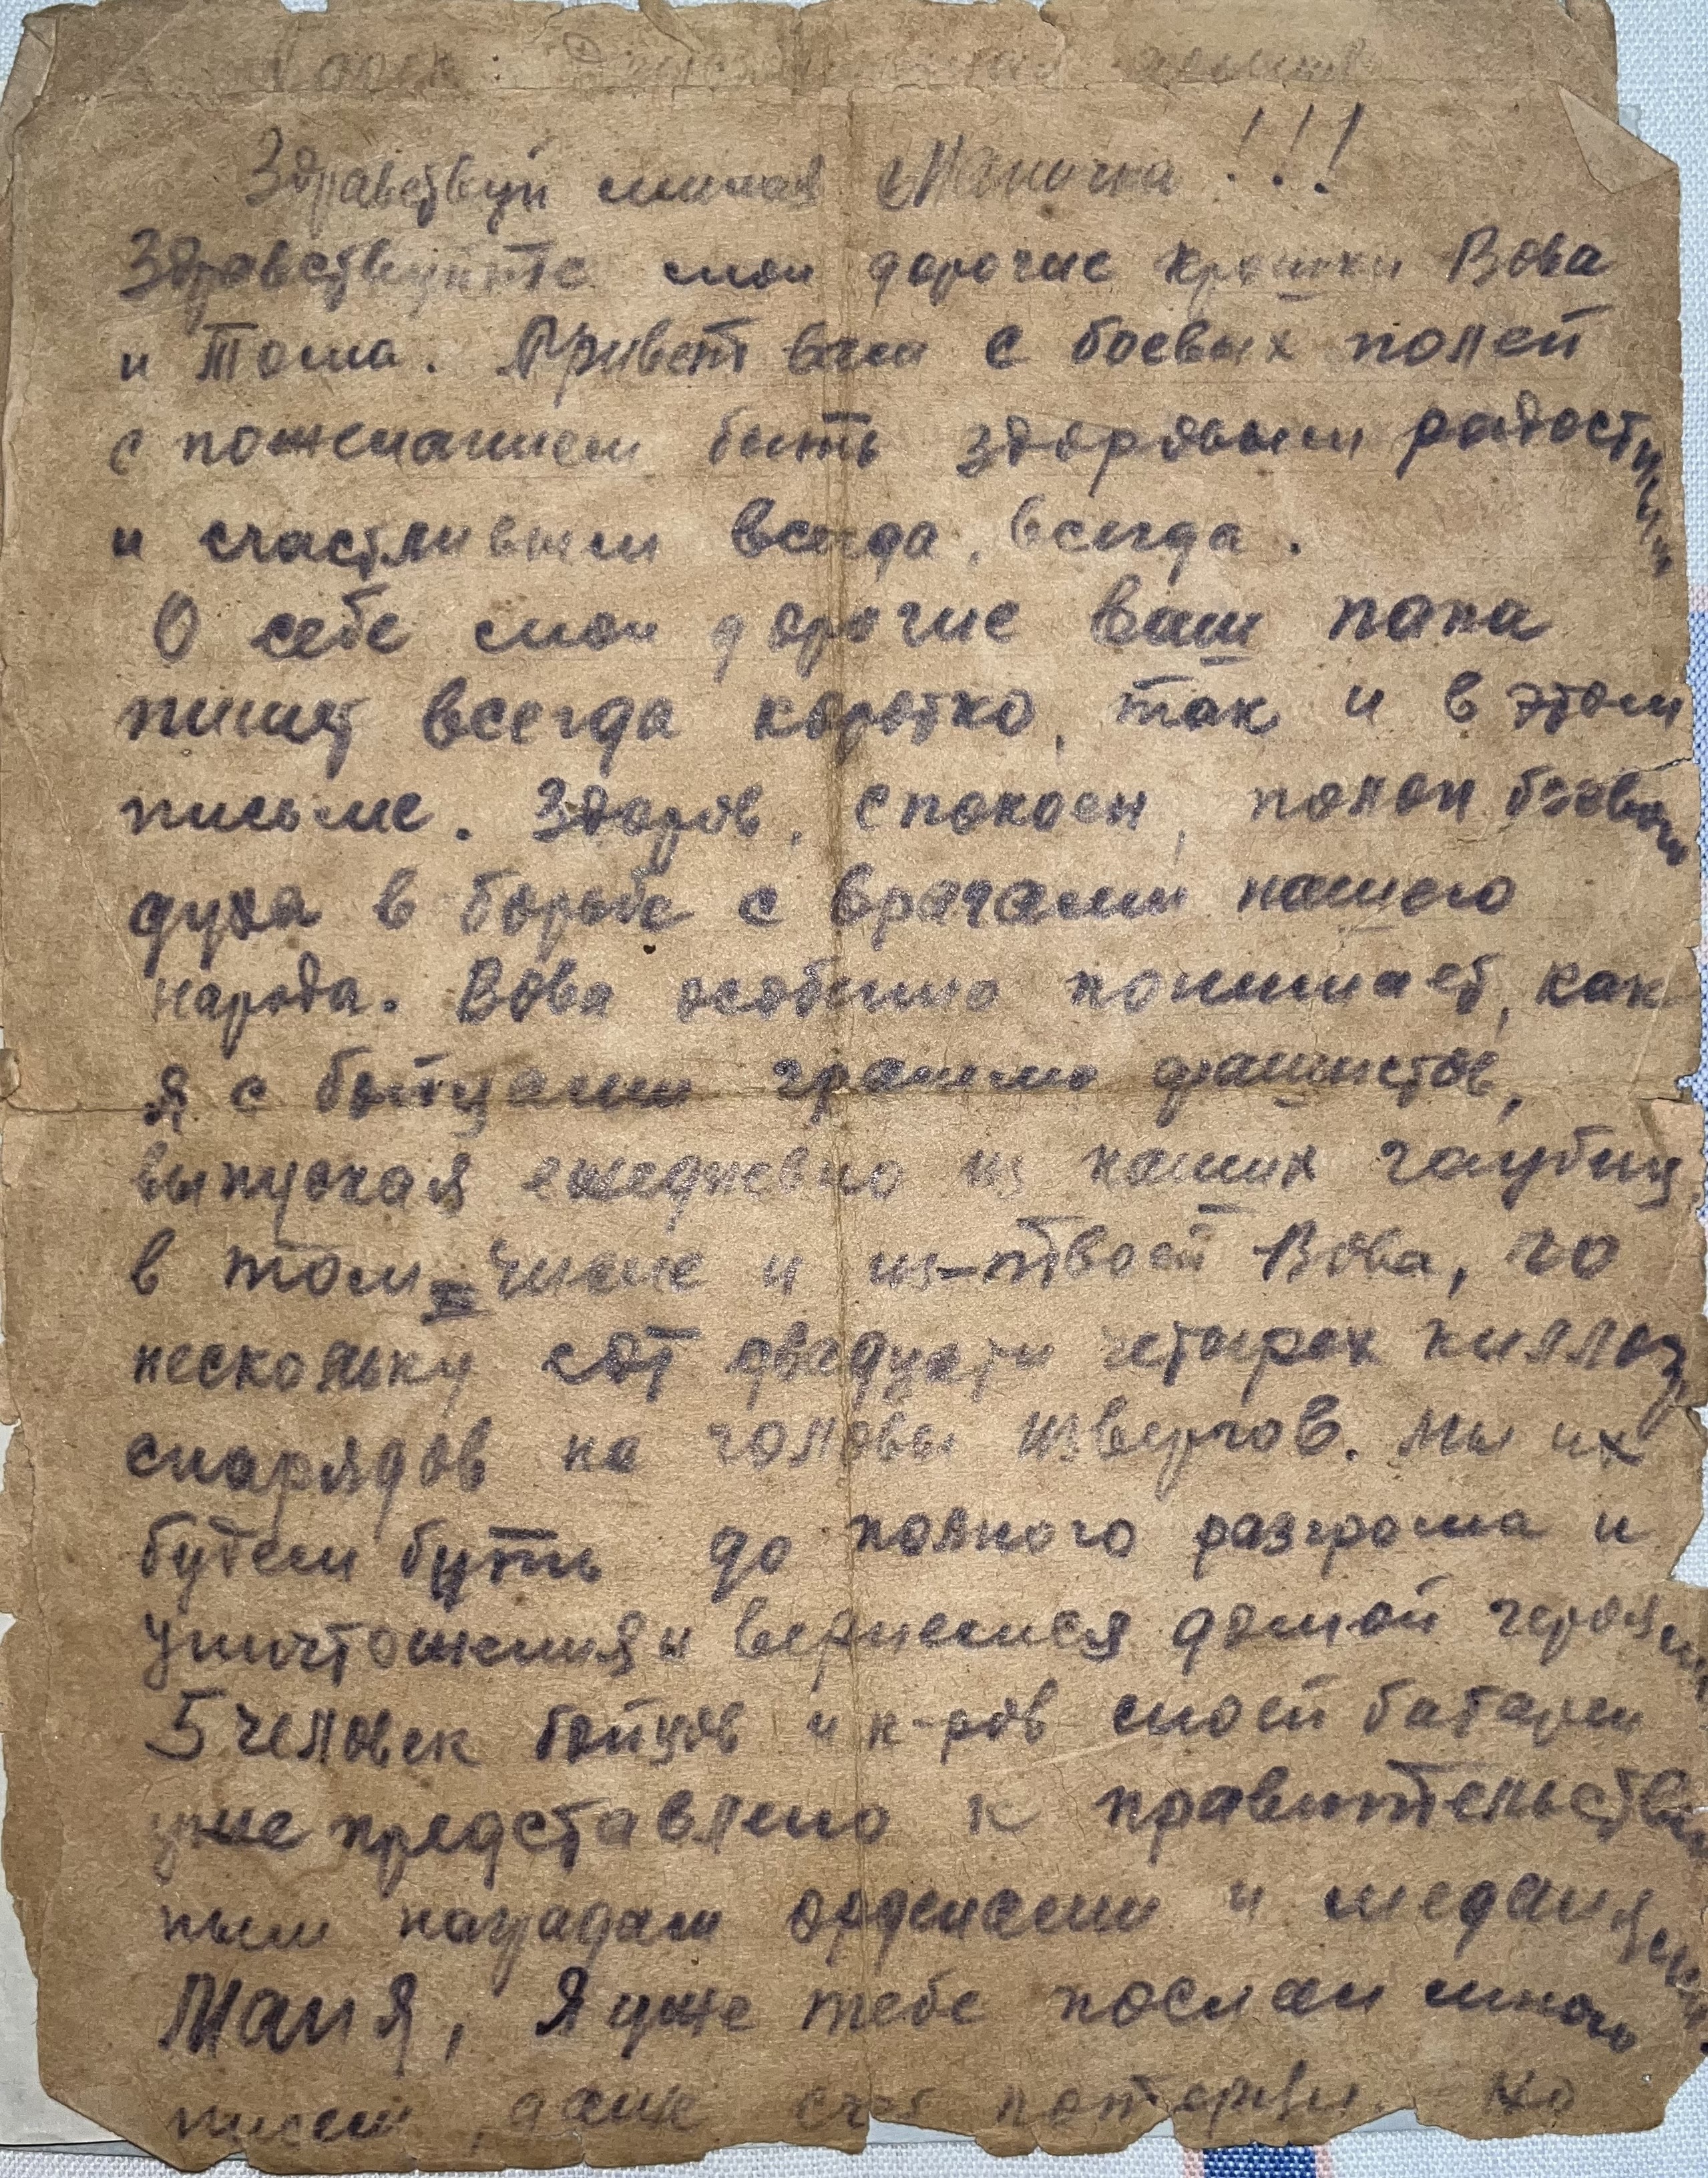 Здравствуй милая Маничка!!!
Здравствуйте мои дорогие крошки Вова
и Тома. Привет вам с боевых полей
с пожеланием быть здоровым радостным
и счастливым всегда, всегда.
О себе мои дорогие ваш папа
пишет всегда коротко, так и в этом
письме. Здоров, спокоен, полон боевого
духа в борьбе с врагами нашего
народа. Вова особенно понимает, как
я с бойцами громлю фашистов,
выпуская ежедневно из наших гаубиц,
в том-числе и из-твоей Вова, по
нескольку сот двадцати четырех килло
снарядов на головы извергов. Мы их
будем бить до полного разгрома и
уничтожения и вернемся домой героями
5 человек бойцов и к-ров моей батареи
уже представлено к правительствен
ным наградам орденами и медалями
Маня, Я уже тебе послал много
писем, даже счет потерял. Но